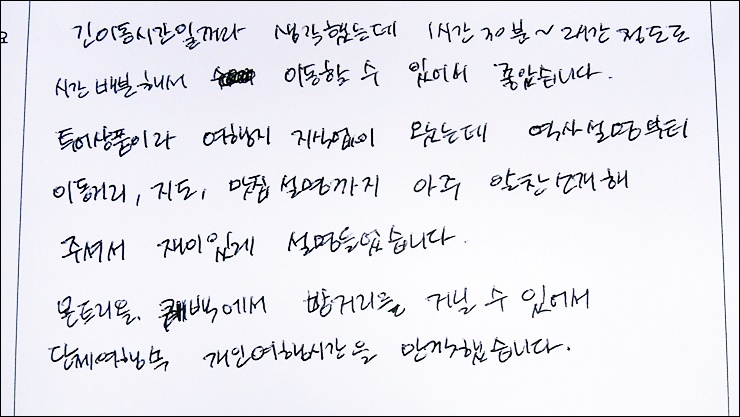 긴이동시간일꺼라 생각했는데 1시간 30분~2시간 정도로
시간 배분해서 이동할 수 있어서 좋았습니다.
투어상품이라 여행지 지식없이 왔는데 역사설명부터
이동거리, 지도, 맛집설명까지 아주 알찬 해
주셔서 재미있게 설명들었습니다.
몬트리올, 퀘백에서 밤거리를 거닐 수 있어서
단체여행 속 개인여행시간을 만끽했습니다.